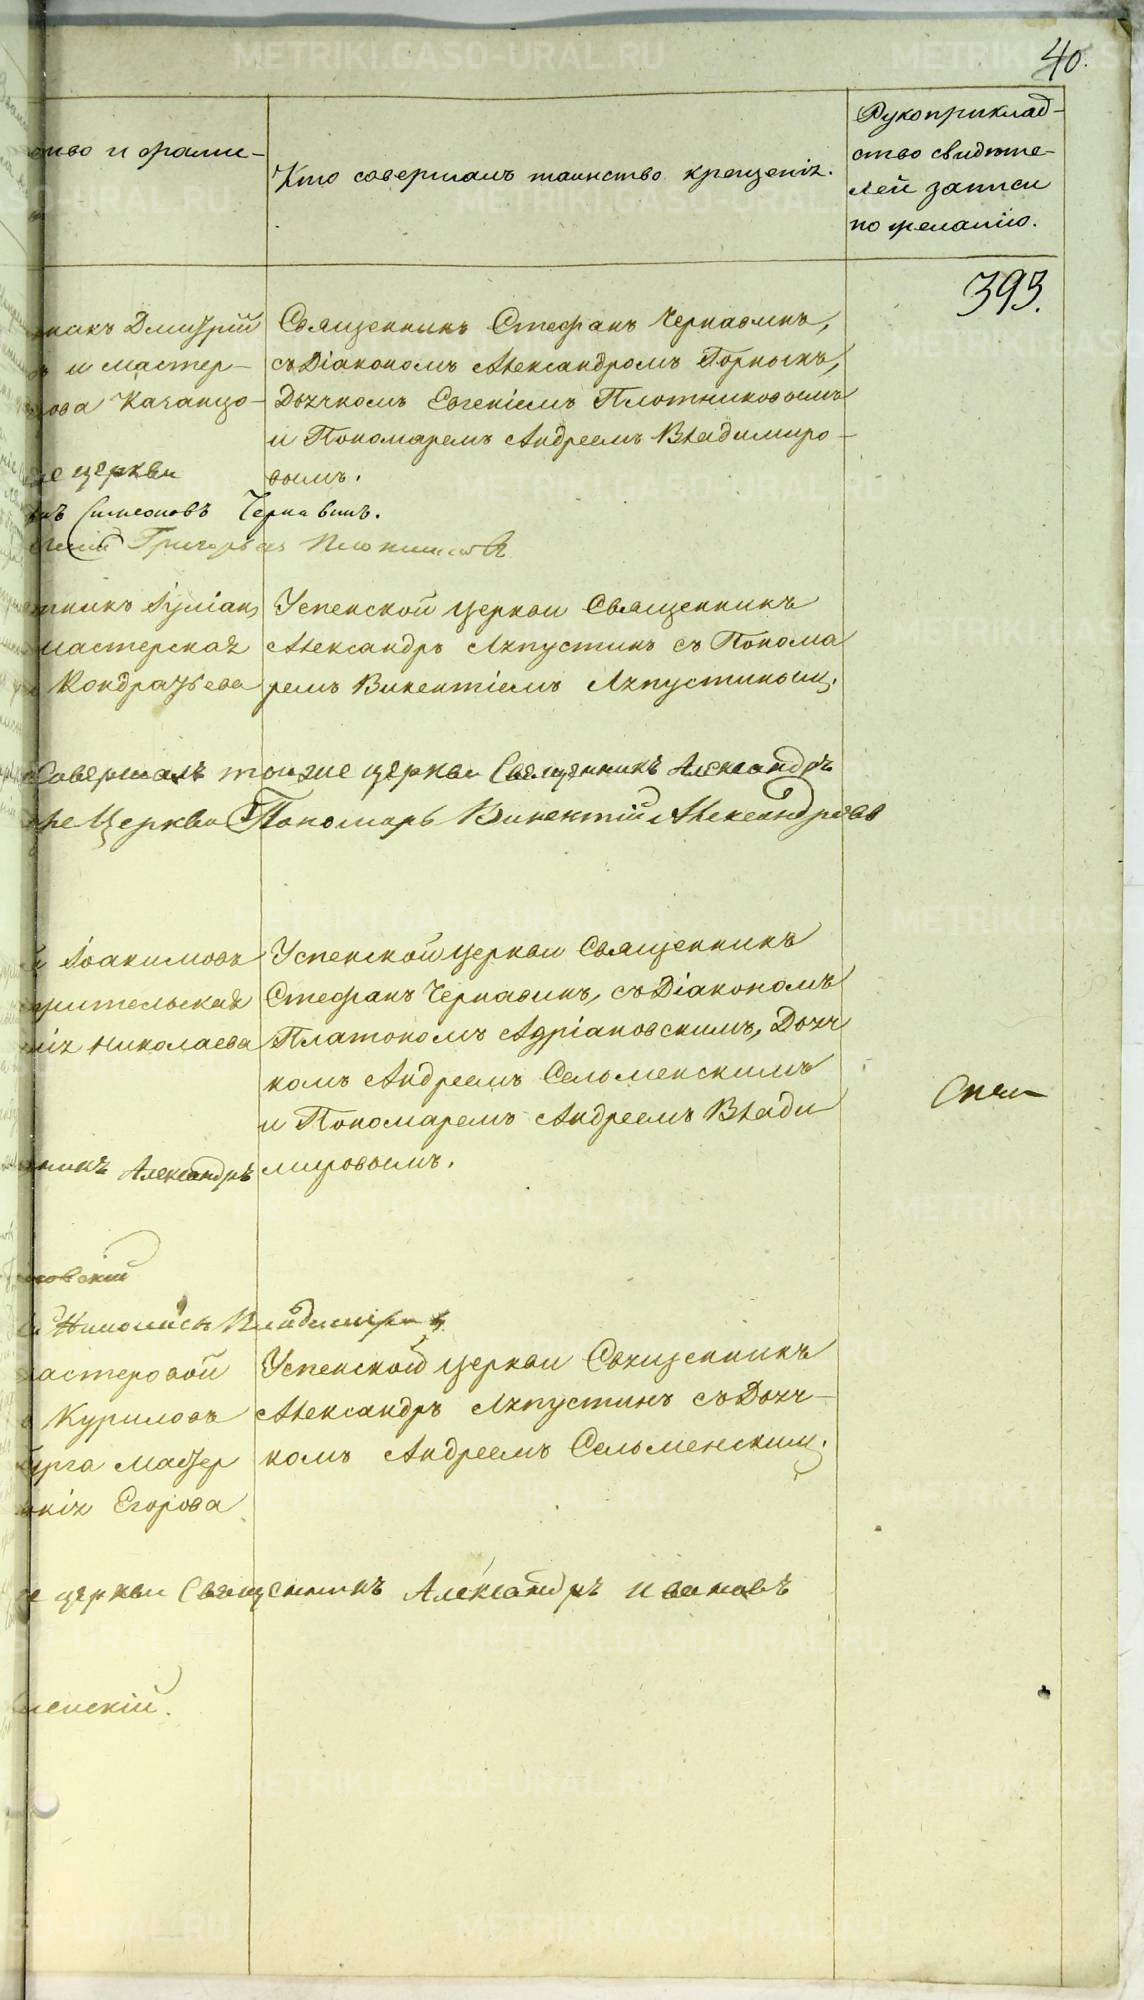 40.
ство и фами-
Кто совершалъ таинство крещенія.
Рукоприклад-
ство свидѣте-
лей записи
по желанію.
393.
Дмитрій
и мастер-
Священникъ Стефанъ Чернавинъ,
съ Діакономъ Александромъ Горныхъ,
Дьячкомъ Евгеніемъ Плотниковымъ
и Пономаремъ Андреемъ Владимиро-
вымъ.
церкви
Симеоновъ Чернавинъ.
Григорьевъ
мастерская
Кондратьева
Успенской церкви Священникъ
Александръ Ляпустинъ съ Понома
ремъ Викентіемъ Ляпустинымъ.
Совершалъ тоиже церкви Священникъ Александръ
Церкви Пономарь Викентій Александровъ
Іоакимовъ
Николаева
Успенской церкви Священникъ
Стефанъ Чернавинъ, съ Діакономъ
Платономъ Адріановскимъ, Дьяч
комъ Андреемъ Сельменскимъ
и Пономаремъ Андреемъ Влади
мировымъ.
Александръ
мастеровой
Куриловъ
Егорова
Успенской церкви Священникъ
Александръ Ляпустинъ съ Дьяч-
комъ Андреемъ Сельменскимъ.
церкви Священникъ Александръ Ивановъ
METRIKI.GASO-URAL.RU